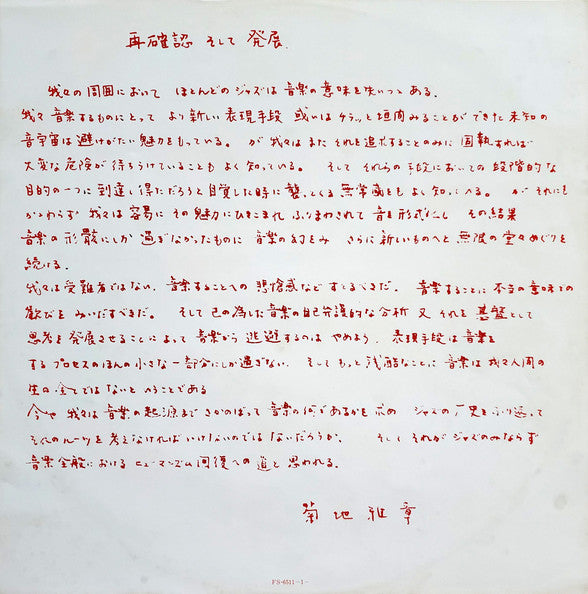 再確認 そして 発展.
我々の周囲において ほとんどのジャズは 音楽の意味を失いつつある.
我々 音楽するものにとって より新しい 表現手段 或いは チラッと 垣間みることができた未知の
音宇宙は避けがたい魅力をもっている。 が 我々は また それを追求することのみに 固執すれば
大変な危険が待ちうけていることも よく知っている。 そして それらの手段においての 段階的な
目的の一つに 到達し得ただろうと自覚した時に襲ってくる 無常感をも よく知っている。 が それにも
かかわらず 我々は 容易に その魅力にひきこまれ ふりまわされて 音を形式化し その結果
音楽の形骸にしか 過ぎなかったものに 音楽の幻をみ さらに新しいものへと 無限の堂々めぐりを
続ける.
我々は受難者ではない. 音楽することへの 悲愴感など すてるべきだ。 音楽することに 本当の意味での
歓びを みいだすべきだ。 そして 己の為した音楽の自己弁護的な分析 又 それを 基盤として
思考を発展させることによって 音楽から 逃避するのは やめよう. 表現手段は音楽を
する プロセスのほんの小さな一部分にしか過ぎない. そして もっと 残酷なことに 音楽は我々人間の
生の全てではないということである
今や 我々は 音楽の起源まで さかのぼって 音楽の何であるかを求め ジャズの歴史をふり返って
そのルーツを考えなければいけないのではないだろうか. そして それがジャズのみならず
音楽全般における ヒューマニズム回復への道と思われる.
菊地 雅章
FS-6511-1-